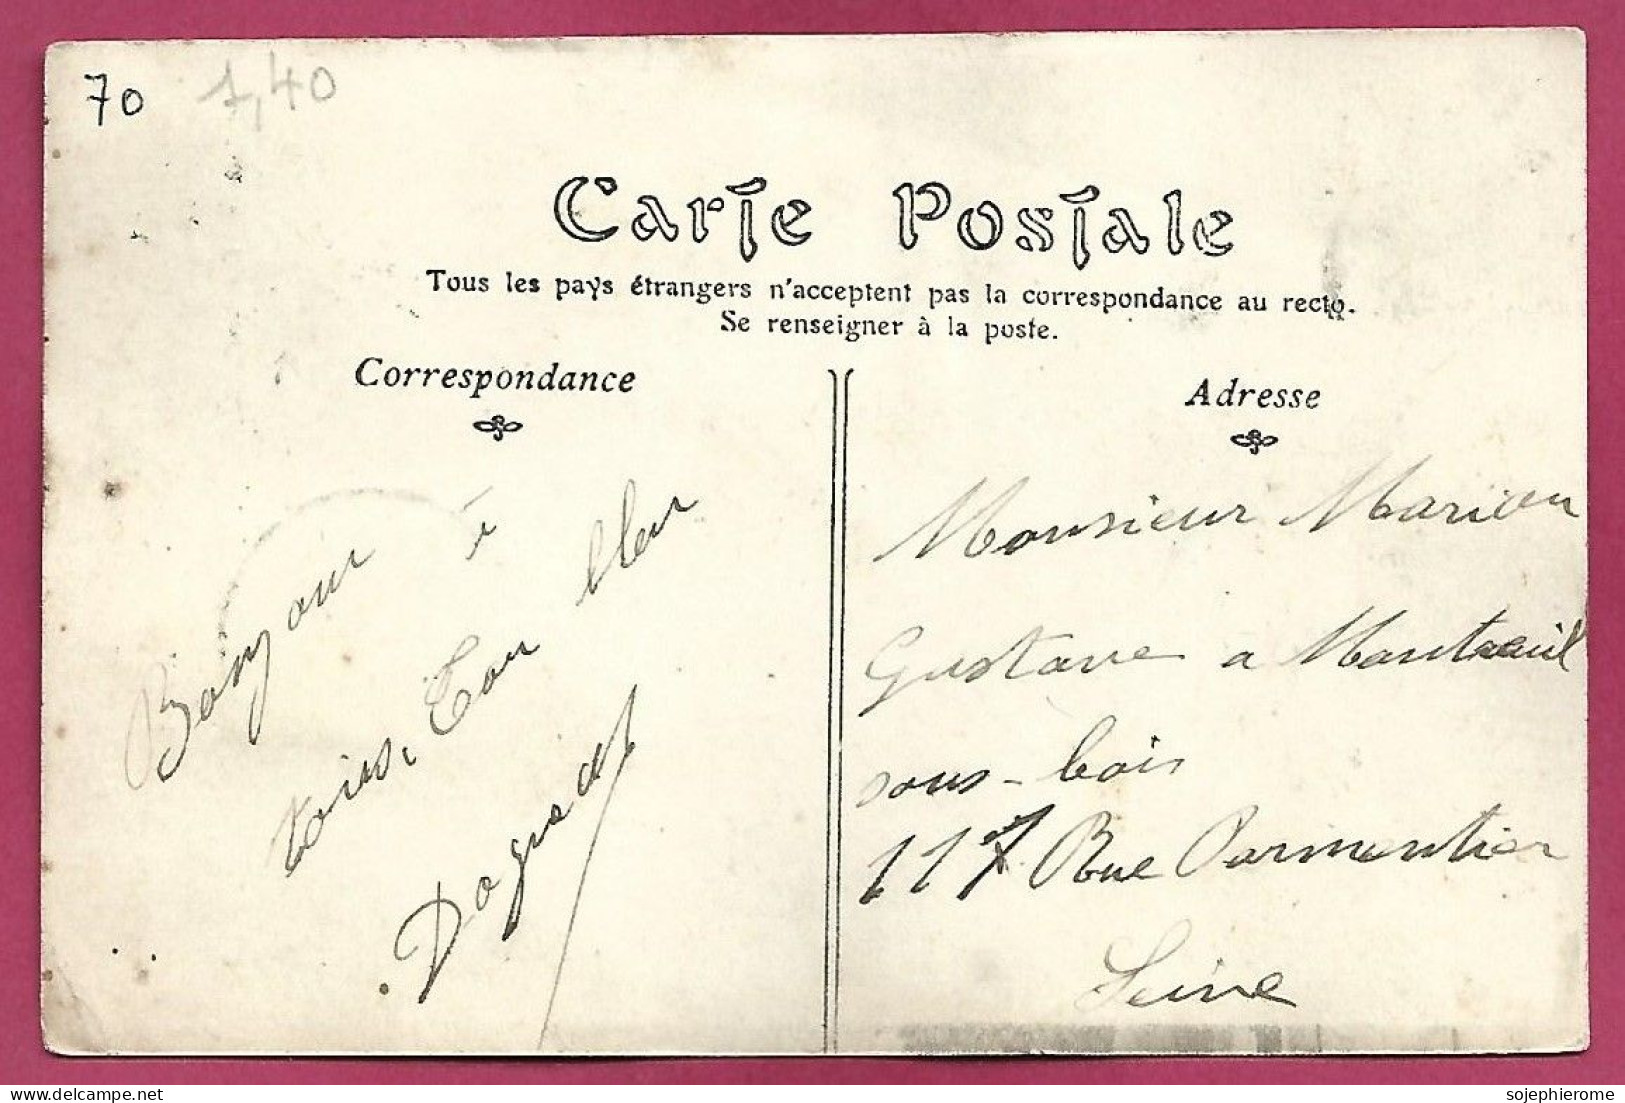 70 1,40
Carte Postale
Tous les pays étrangers n'acceptent pas la correspondance au recto.
Se renseigner à la poste.
Correspondance
Bonjour à
tous, Ton
Adresse
Monsieur Marion
Gustave a Montreuil
sous-bois
117 Rue Parmentier
Seine
sojephierome